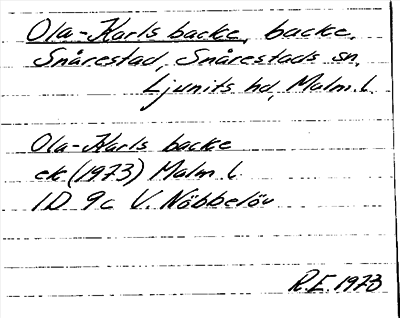 Ola-Karls backe, backe,
Snårestad, Snårestads sn,
Ljunits hd, Malm.l.
Ola-Karls backe
ek (1973) Malm.l.
1D 9c V. Nöbbelöv
R.E. 1973